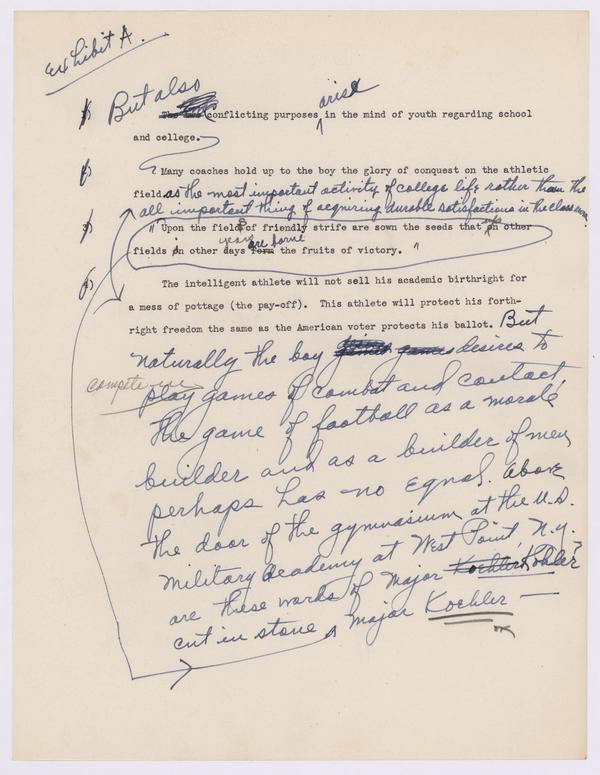 Exhibit A.
But also
arise
The two conflicting purposes in the mind of youth regarding school
and college.
Many coaches hold up to the boy the glory of conquest on the athletic
field as the most important activity of college life rather than the
all important thing of acquiring durable satisfactions in the class room.
"Upon the fields of friendly strife are sown the seeds that on other
years are borne
fields in other days form the fruits of victory."
The intelligent athlete will not sell his academic birthright for
a mess of pottage (the pay-off). This athlete will protect his forth-
right freedom the same as the American voter protects his ballot. But
naturally the boy games desires to
compete in
play games of combat and contact,
the game of football as a morale
builder and as a builder of men
perhaps has no equal. Above
the door of the gymnasium at the U.S.
Military Academy at West Point, N.Y.
are these words of Major Koehler Kohler?
cut in stone, Major Koehler —
ok